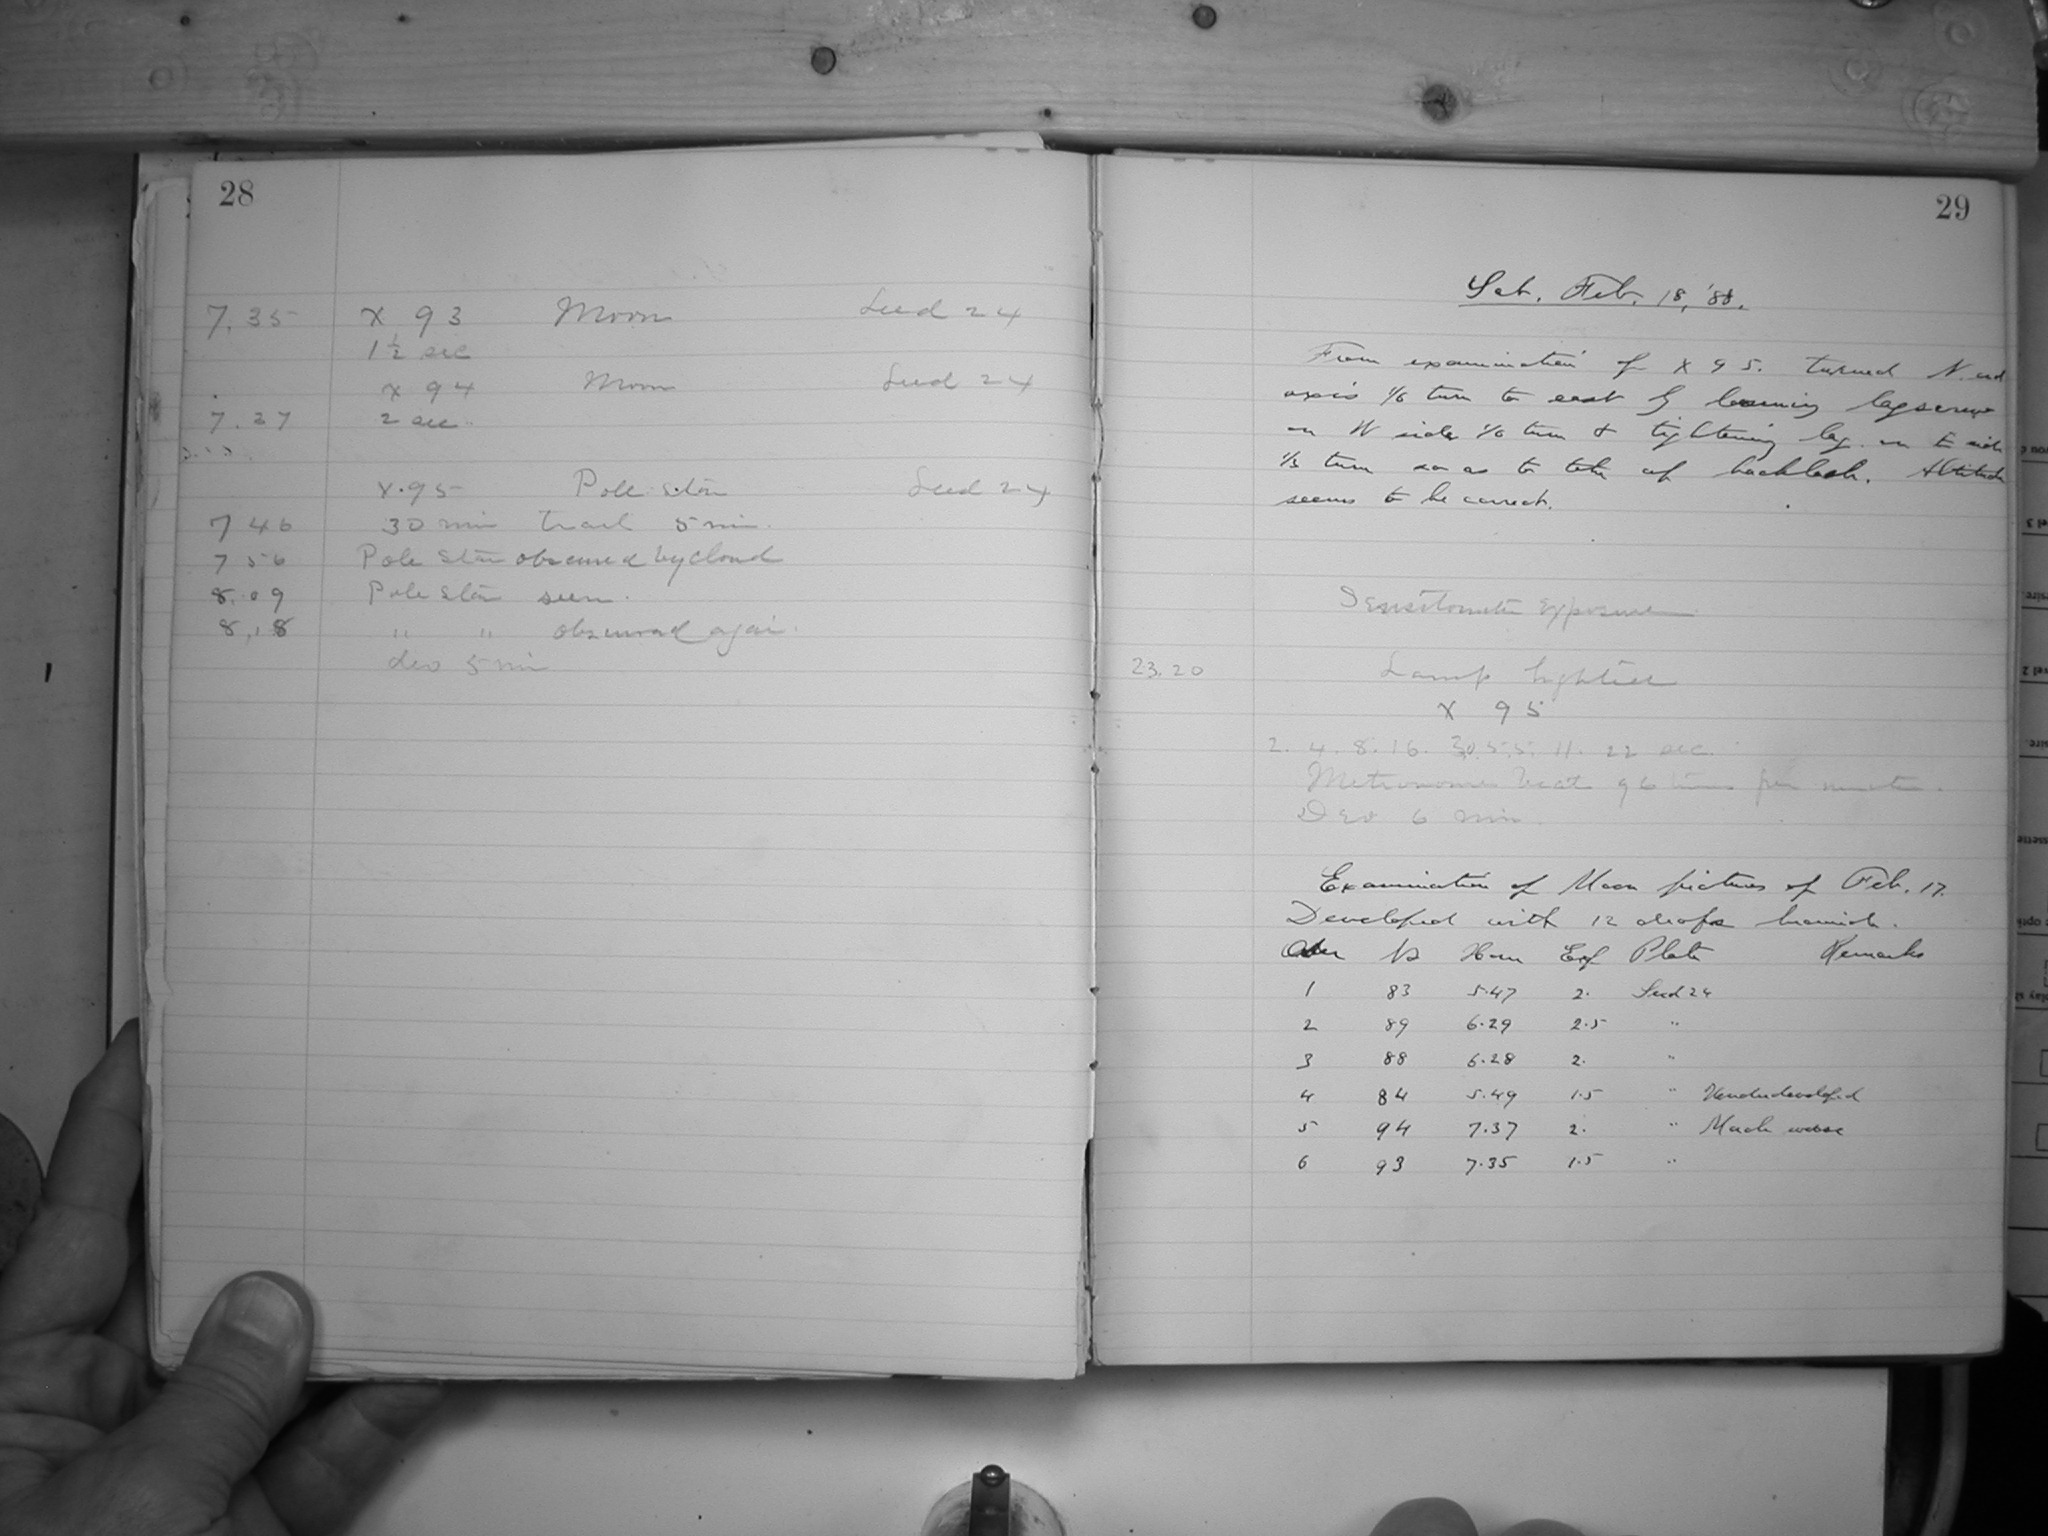 28
7.35 X 93 Moon Seed 24
1½ sec
X 94 Moon Seed 24
7.37 2 sec.
X.95 Pole Star Seed 24
7 46 30 min trail 5 min.
7 56 Pole Star obscured by cloud
8.09 Pole Star seen.
8,18 " " obscured again.
dev 5 min
29
Sat. Feb. 18, '88.
From examination of X 95. turned N. end
axis 1/6 turn to east by loosening lagscrew
on W side 1/6 turn & tightening lag. on E side
1/3 turn so as to take up backlash. Altitude
seems to be correct.
Densitometer Exposure
23.20 Lamp lighted
X 95
2. 4. 8. 16. 30. 5.5. 11. 22 sec.
Metronome beat 96 times per minute.
Dev 6 min.
Examination of Moon pictures of Feb. 17.
Developed with 12 drops bromide.
Order No Hour Exp Plate Remarks
1 83 5.47 2. Seed 24
2 89 6.29 2.5 "
3 88 6.28 2. "
4 84 5.49 1.5 " Underdeveloped
5 94 7.37 2. " Much worse
6 93 7.35 1.5 "